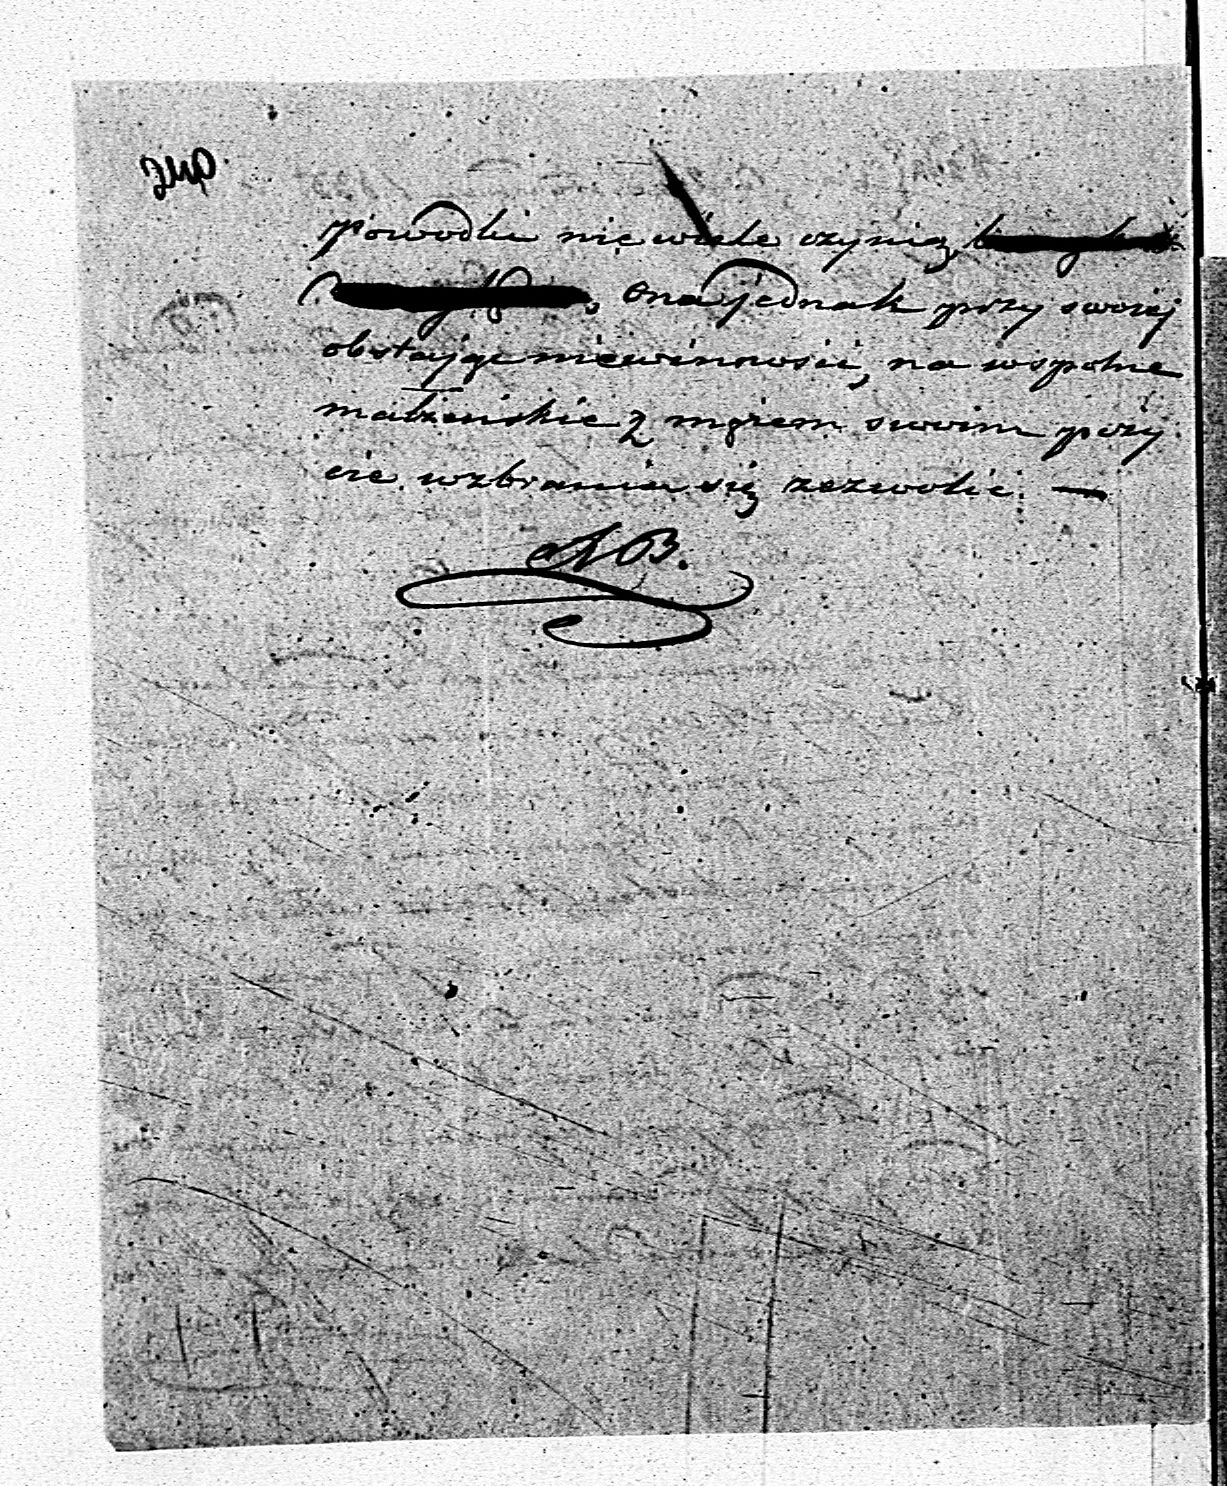 powodki nie wiele czynią,
, ona jednak przy swoiej
obstając niewinności, na wspolne
małżeńskie z mężem swoim poży
cie wzbrania się zezwolić. —
NB.